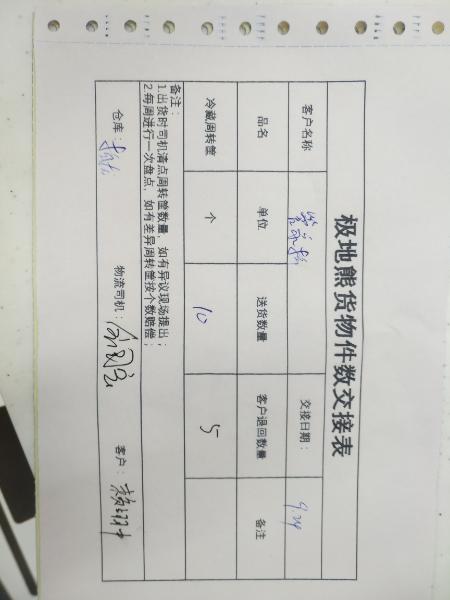 极地熊货物件数交接表
客户名称 交接日期： 9.24
品名 单位 送货数量 客户退回数量 备注
冷藏周转筐 个 10 5
备注：
1.出货时司机清点周转筐数量，如有异议现场提出；
2.每周进行一次盘点，如有差异周转筐按个数赔偿；
仓库： 物流司机： 客户：